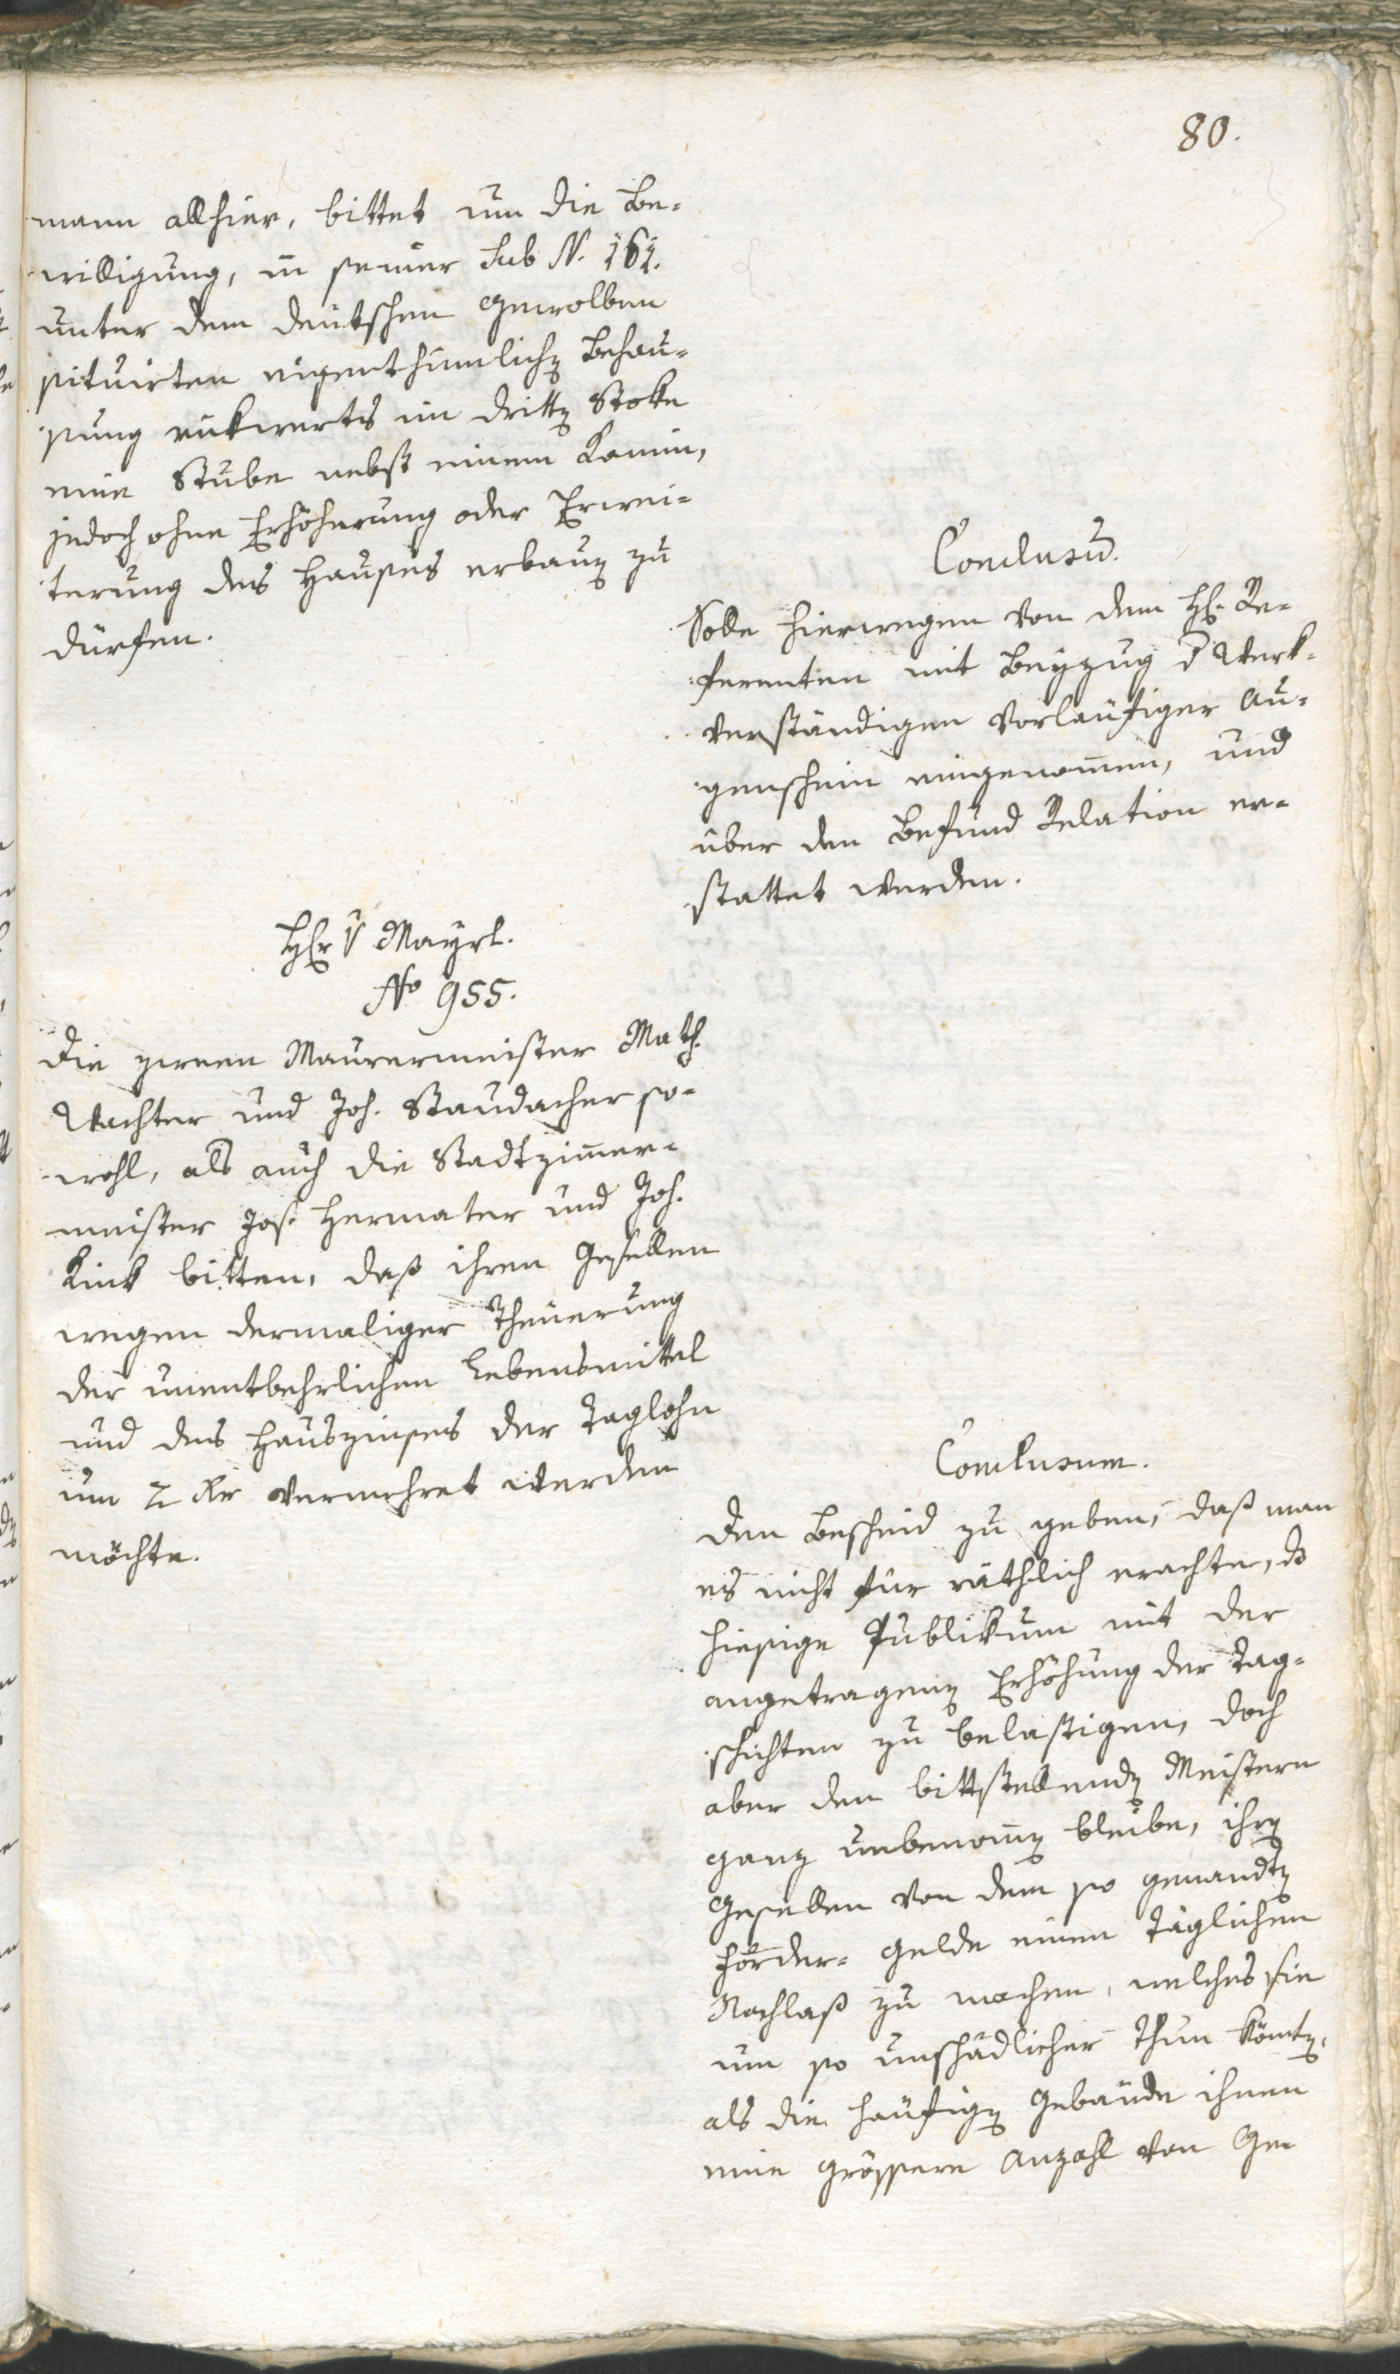 80.
mann allhier, bittet um die Be-
willigung, in seiner sub N. 161.
unter dem deutschen Gewolben
situirten eigenthümlichen Behau-
sung rükwerts im dritten Stoke
eine Stube nebst einem Kamin,
jedoch ohne Erhöherung oder Erwei-
terung des Hauses erbauen zu
dürfen.
Conclusum.
Solle hierwegen von dem H. Re-
ferenten mit Beyzug der Werk-
verständigen vorläufiger Au-
genschein eingenommen, und
über den Befund Relation er-
stattet werden.
Hr v Mayrl.
No 955.
Die zween Maurermeister Math.
Wachter und Joh. Staudacher so-
wohl, als auch die Stadtzimmer-
meister Jos. Hermater und Joh.
Kink bitten, daß ihren Gesellen
wegen dermaliger Theuerung
der unentbehrlichen Lebensmittel
und des Hauszinses der Taglohn
um 2 Kr vermehret werden
möchte.
Conclusum.
Den Bescheid zu geben, daß man
es nicht für räthlich erachte, das
hiesige Publikum mit der
angetragenen Erhöhung der Tag-
schichten zu belastigen, doch
aber den bittstellenden Meistern
ganz unbenommen bleibe, ihren
Gesellen von dem so genandten
Förder-Gelde einen täglichen
Nachlaß zu machen, welches sie
um so unschädlicher thun könten,
als die häufigen Gebäude ihnen
eine grössere Anzahl von Ge-